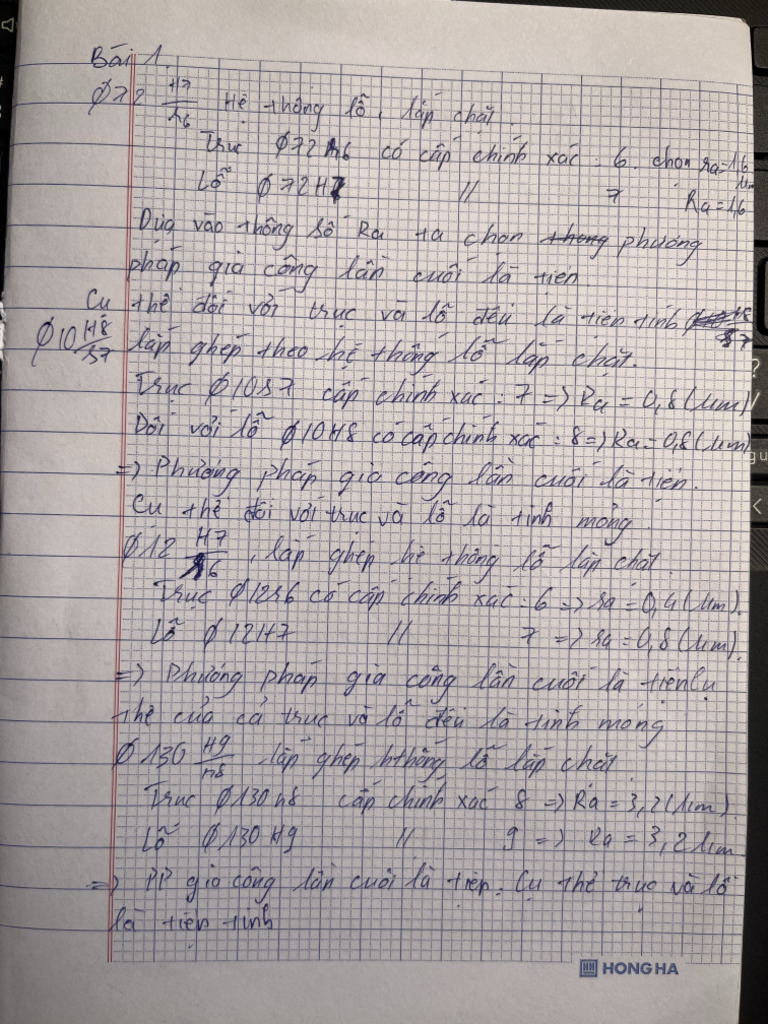 Bài 1
Ø72 H7/s6 Hệ thống lỗ, lắp chặt.
Trục Ø72 s6 có cấp chính xác : 6. chọn ra=1,6 µm
Lỗ Ø72H7 // 7 Ra=1,6
Dựa vào thông số Ra ta chọn phương
pháp gia công lần cuối là tiện.
Cụ thể đối với trục và lỗ đều là tiện tinh
Ø10 H8/s7 lắp ghép theo hệ thống lỗ lắp chặt.
Trục Ø10s7 cấp chính xác : 7 => Ra = 0,8 (µm)
Đối với lỗ Ø10H8 có cấp chính xác : 8 => Ra = 0,8 (µm)
=> Phương pháp gia công lần cuối là tiện.
Cụ thể đối với trục và lỗ là tinh mỏng.
Ø12 H7/s6, lắp ghép hệ thống lỗ lắp chặt.
Trục Ø12s6 có cấp chính xác : 6 => ra = 0,4 (µm).
Lỗ Ø12H7 // 7 => ra = 0,8 (µm).
=> Phương pháp gia công lần cuối là tiện Cụ
thể của cả trục và lỗ đều là tinh mỏng
Ø130 H9/n8 lắp ghép hthống lỗ lắp chặt.
Trục Ø130n8 cấp chính xác 8 => Ra = 3,2 (µm).
Lỗ Ø130 H9 // 9 => Ra = 3,2 µm
=> PP gia công lần cuối là tiện. Cụ thể trục và lỗ
là tiện tinh
HONG HA